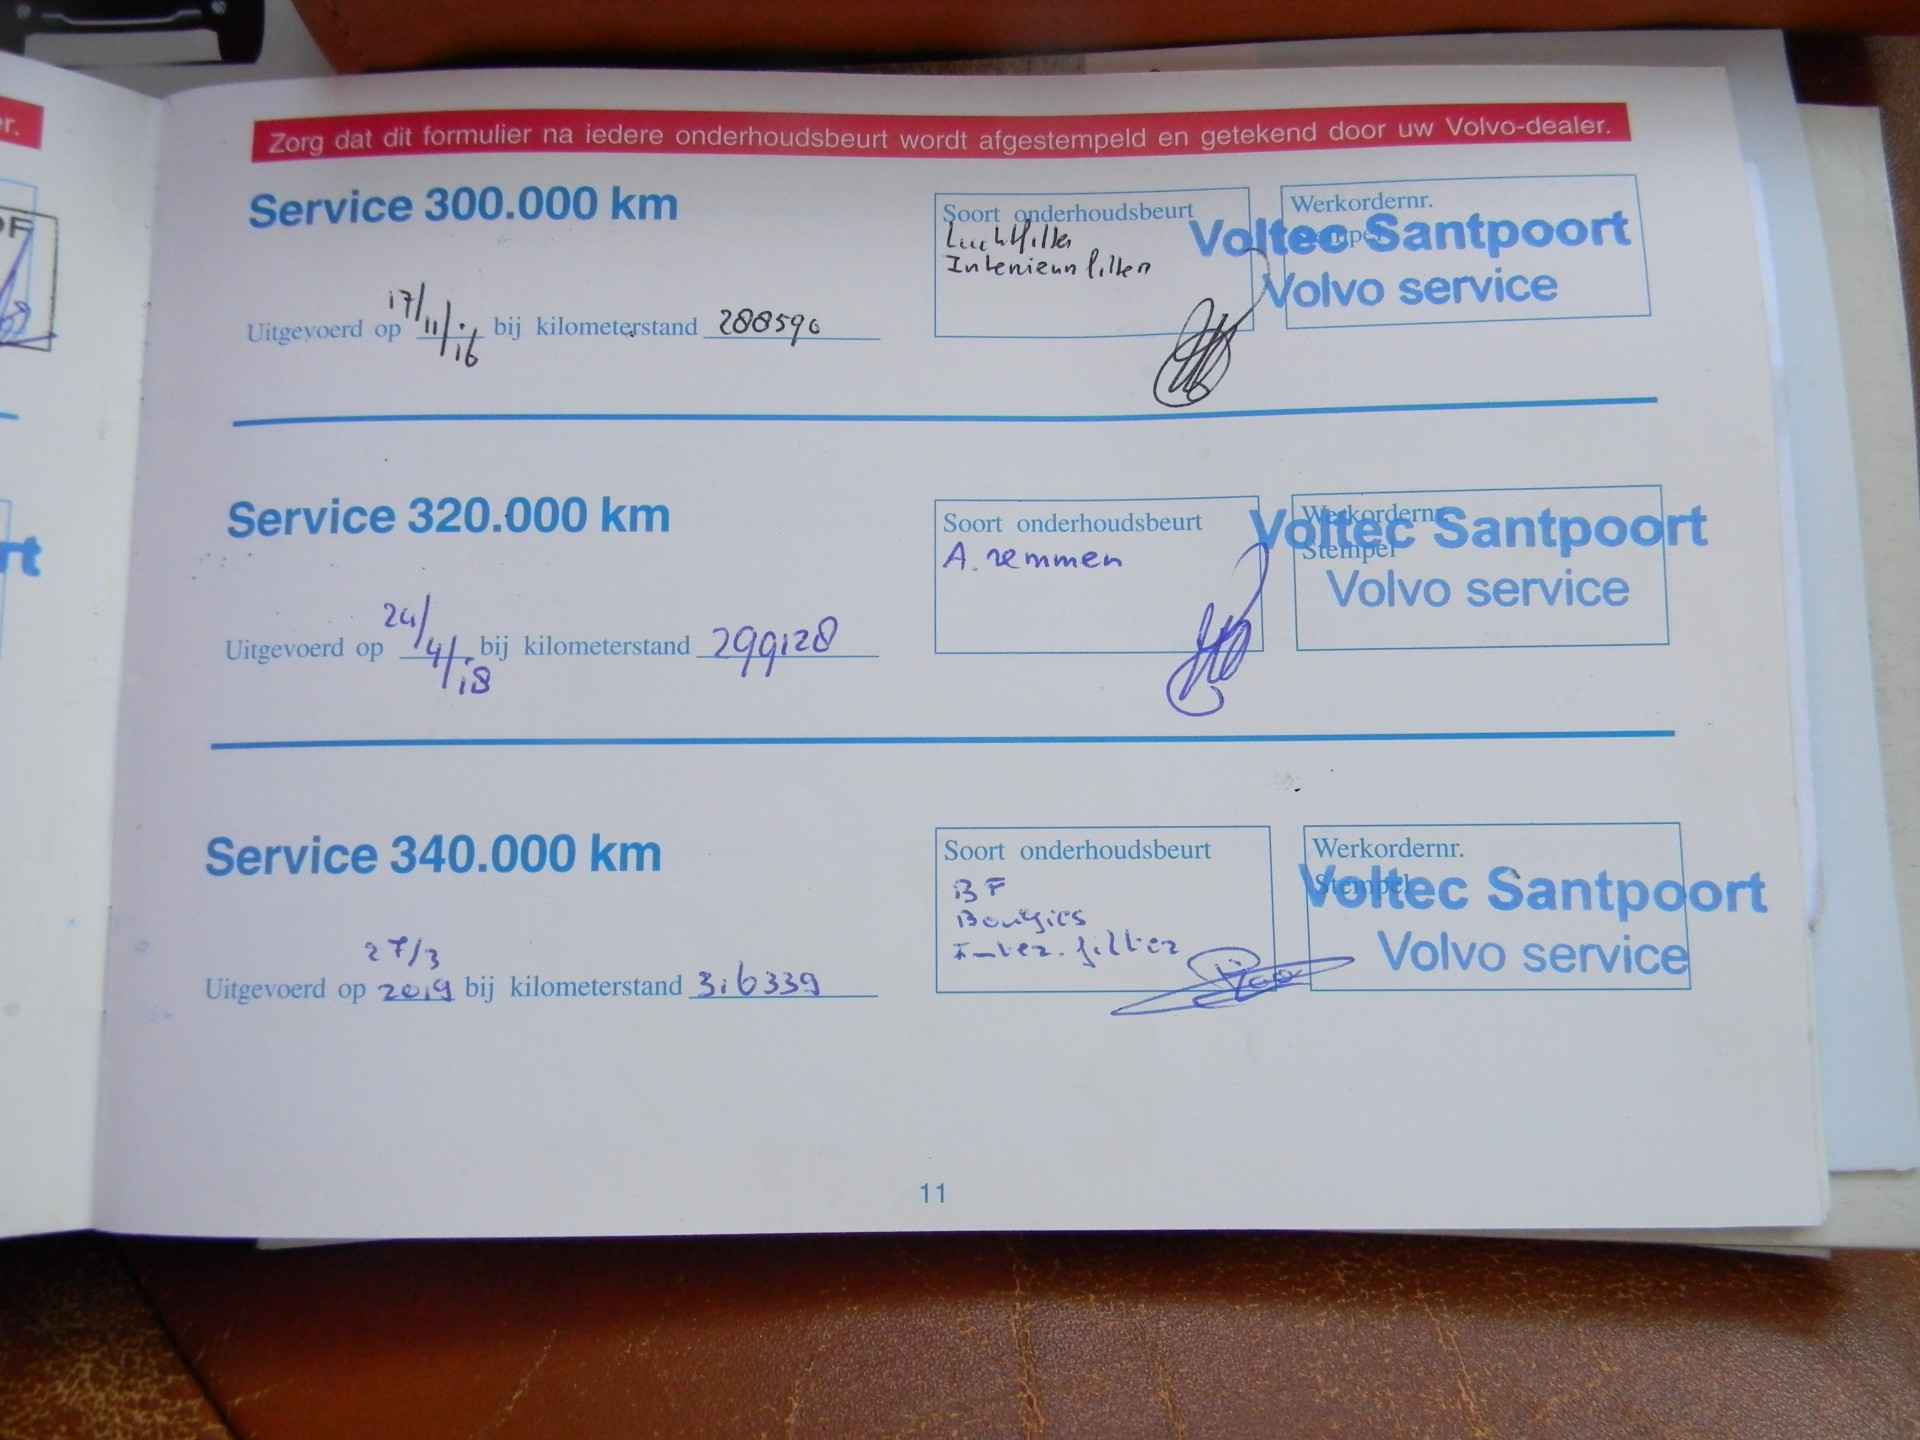 Zorg dat dit formulier na iedere onderhoudsbeurt wordt afgestempeld en getekend door uw Volvo-dealer.
Service 300.000 km
Soort onderhoudsbeurt
Luchtfilter
Interieur filter
Werkordernr.
Stempel
Voltec Santpoort
Volvo service
Uitgevoerd op 17/11/16 bij kilometerstand 288590
Service 320.000 km
Soort onderhoudsbeurt
A. remmen
Werkordernr.
Stempel
Voltec Santpoort
Volvo service
Uitgevoerd op 24/4/18 bij kilometerstand 299128
Service 340.000 km
Soort onderhoudsbeurt
BF
Bougies
Inter. filter
Werkordernr.
Stempel
Voltec Santpoort
Volvo service
Uitgevoerd op 27/3 2019 bij kilometerstand 316339
11
r.
rt